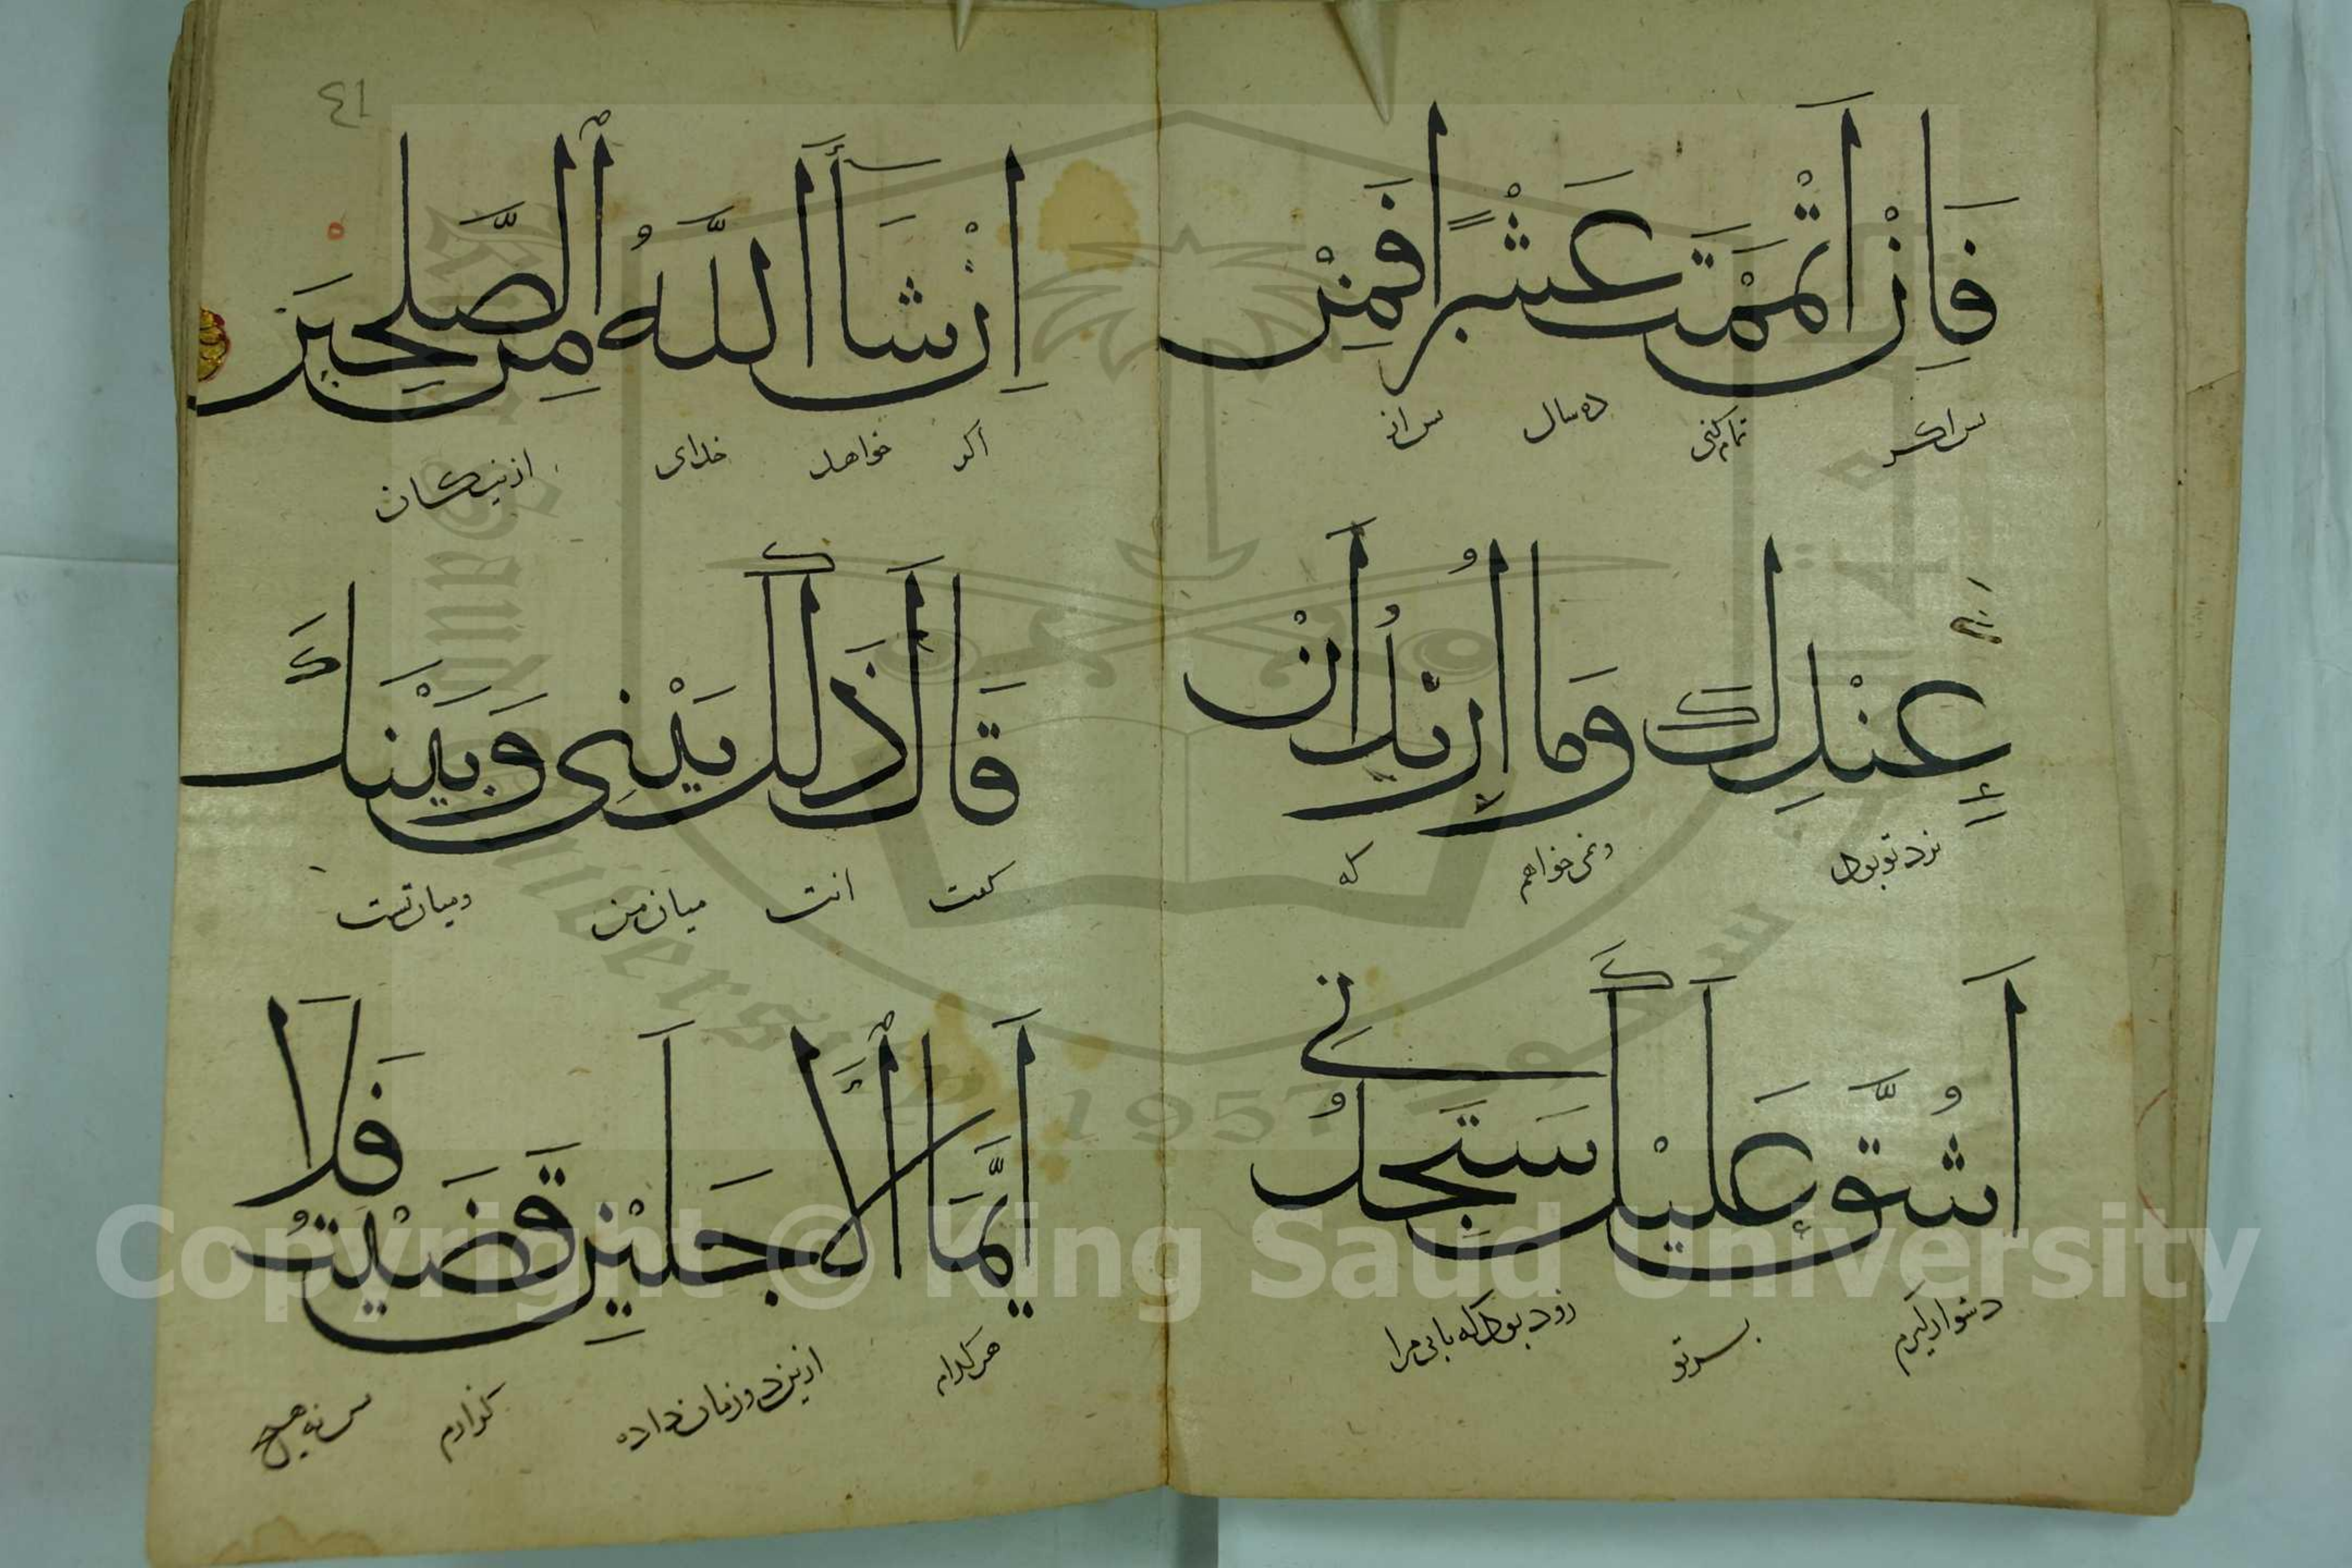 فَاِنْ اَتْمَمْتَ عَشْرًا فَمِنْ
پس اگر تمام کنی ده سال پس از
عِنْدِكَ وَمَا اُرِيْدُ اَنْ
نزد تو بود ونمی خواهم که
اَشُقَّ عَلَيْكَ سَتَجِدُنِي
دشوار گیرم بر تو زود بود که یابی مرا
٤١
اِنْ شَآءَ اللّٰهُ مِنَ الصّٰلِحِيْنَ
اگر خواهد خدای از نیکان
قَالَ ذٰلِكَ بَيْنِى وَبَيْنَكَ
گفت انت میان من ومیان تست
اَيَّمَا الْاَجَلَيْنِ قَضَيْتُ فَلَا
هر کدام ازین دو زمان داده گذارم پس نه هیچ
King Saud University
1957
Copyright © King Saud University